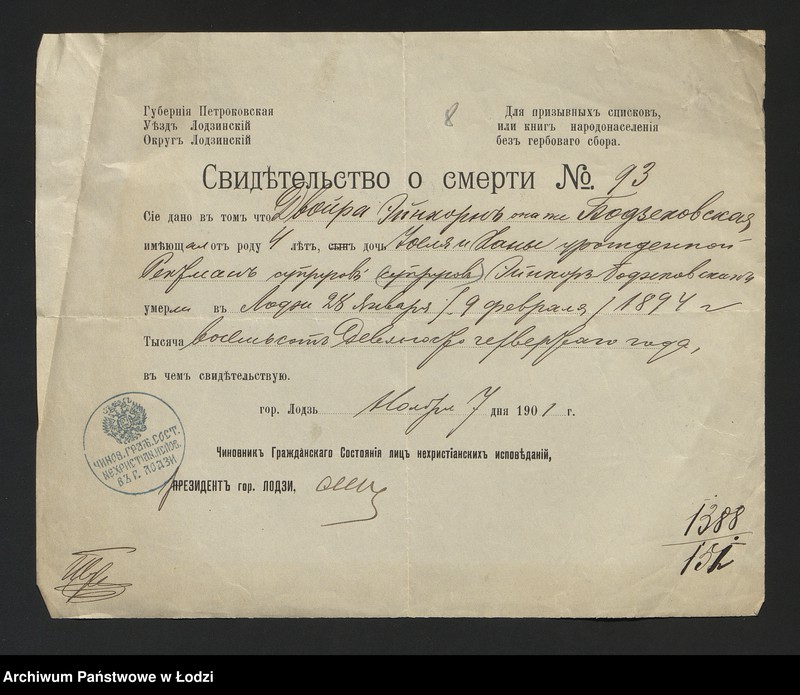 Губернія Петроковская
Уѣздъ Лодзинскій
Округъ Лодзинскій
8
Для призывныхъ списковъ,
или книгъ народонаселенія
безъ гербоваго сбора.
Свидѣтельство о смерти №. 93
Сіе дано въ томъ что Двойра Эйнхорнъ она же Бодзеховская
имѣющая отъ роду 4 лѣтъ, сынъ дочь и Ханы урожденной
супруговъ (супруговъ)
умерли въ Лодзи 28 Января / 9 февраля / 1894 г
Тысяча восемьсотъ Девяносто четвертаго года,
въ чемъ свидѣтельствую.
гор. Лодзь Ноября 7 дня 1901 г.
ЧИНОВ. ГРАЖ. СОСТ.
НЕХРИСТІАН. ИСПОВ.
ВЪ Г. ЛОДЗИ
Чиновникъ Гражданскаго Состоянія лицъ нехристіанскихъ исповѣданій,
ПРЕЗИДЕНТЪ гор. ЛОДЗИ,
1388
151
Archiwum Państwowe w Łodzi